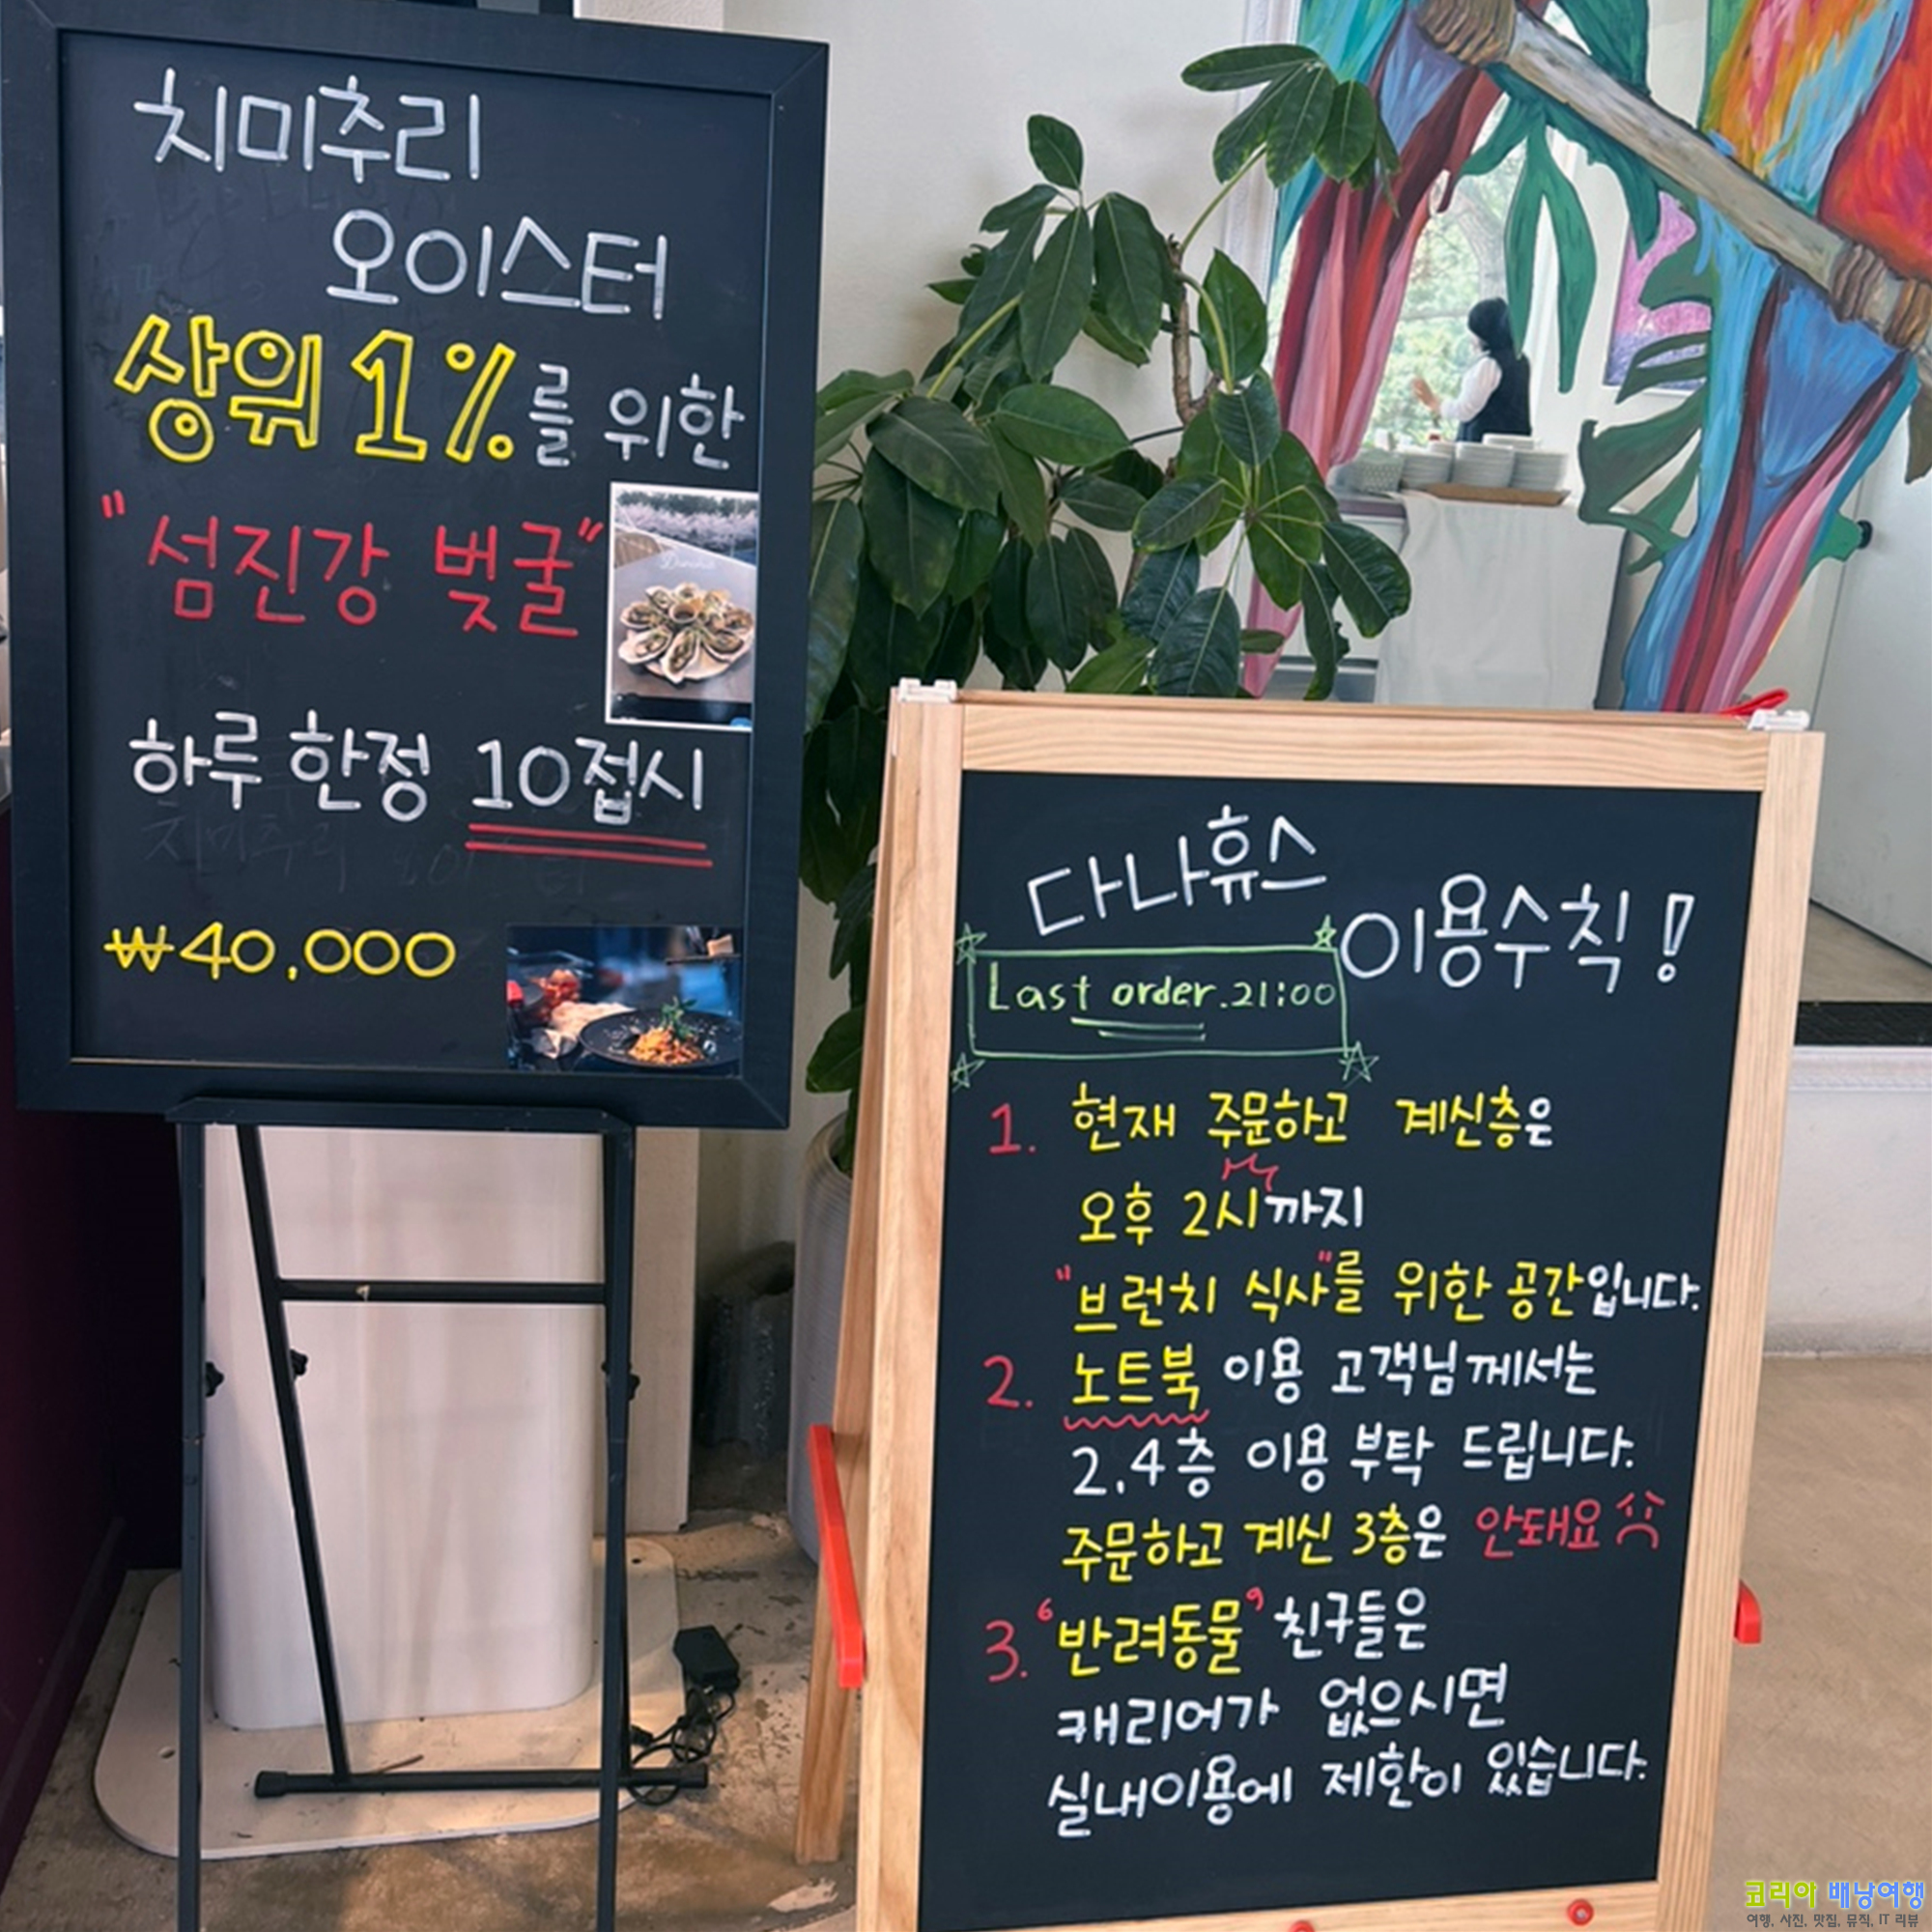 치미추리
오이스터
상위 1%를 위한
"섬진강 벚굴"
하루 한정 10접시
₩40,000
다나휴스
이용수칙!
Last order.21:00
1. 현재 주문하고 계신층은
오후 2시까지
"브런치 식사"를 위한 공간입니다.
2. 노트북 이용 고객님께서는
2.4층 이용 부탁 드립니다.
주문하고 계신 3층은 안돼요
3. '반려동물' 친구들은
캐리어가 없으시면
실내이용에 제한이 있습니다.
코리아 배낭여행
여행, 사진, 맛집, 뮤직, IT 리뷰